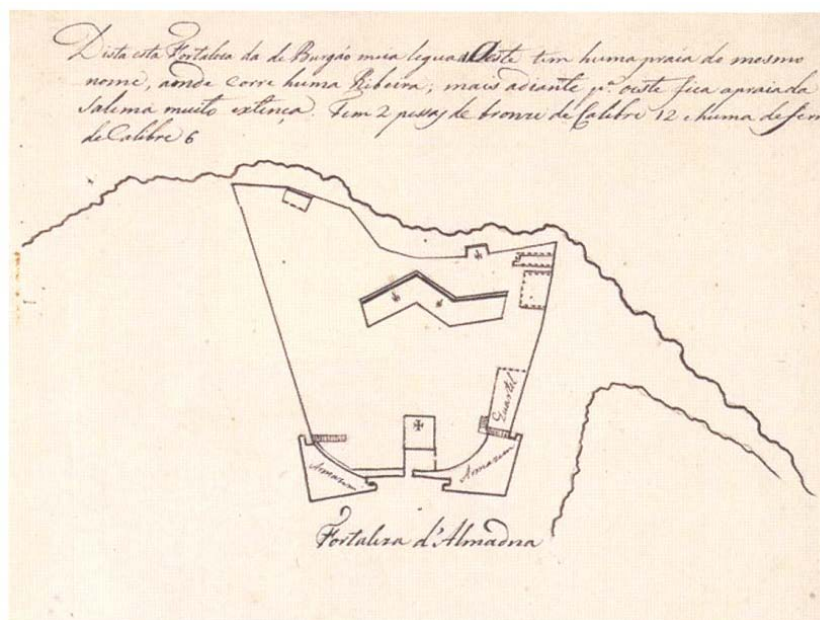 Dista esta Fortaleza da de Burgáo meia legua a Oeste tem huma praia do mesmo
nome, aonde corre huma Ribeira; mais adiante pª. oeste fica a praia da
Salema muito extinça. Tem 2 pessas de bronze de Calibre 12 e huma de ferr
de Calibre 6
Quartel
Armazem
Armazem
Fortaleza d'Almadna